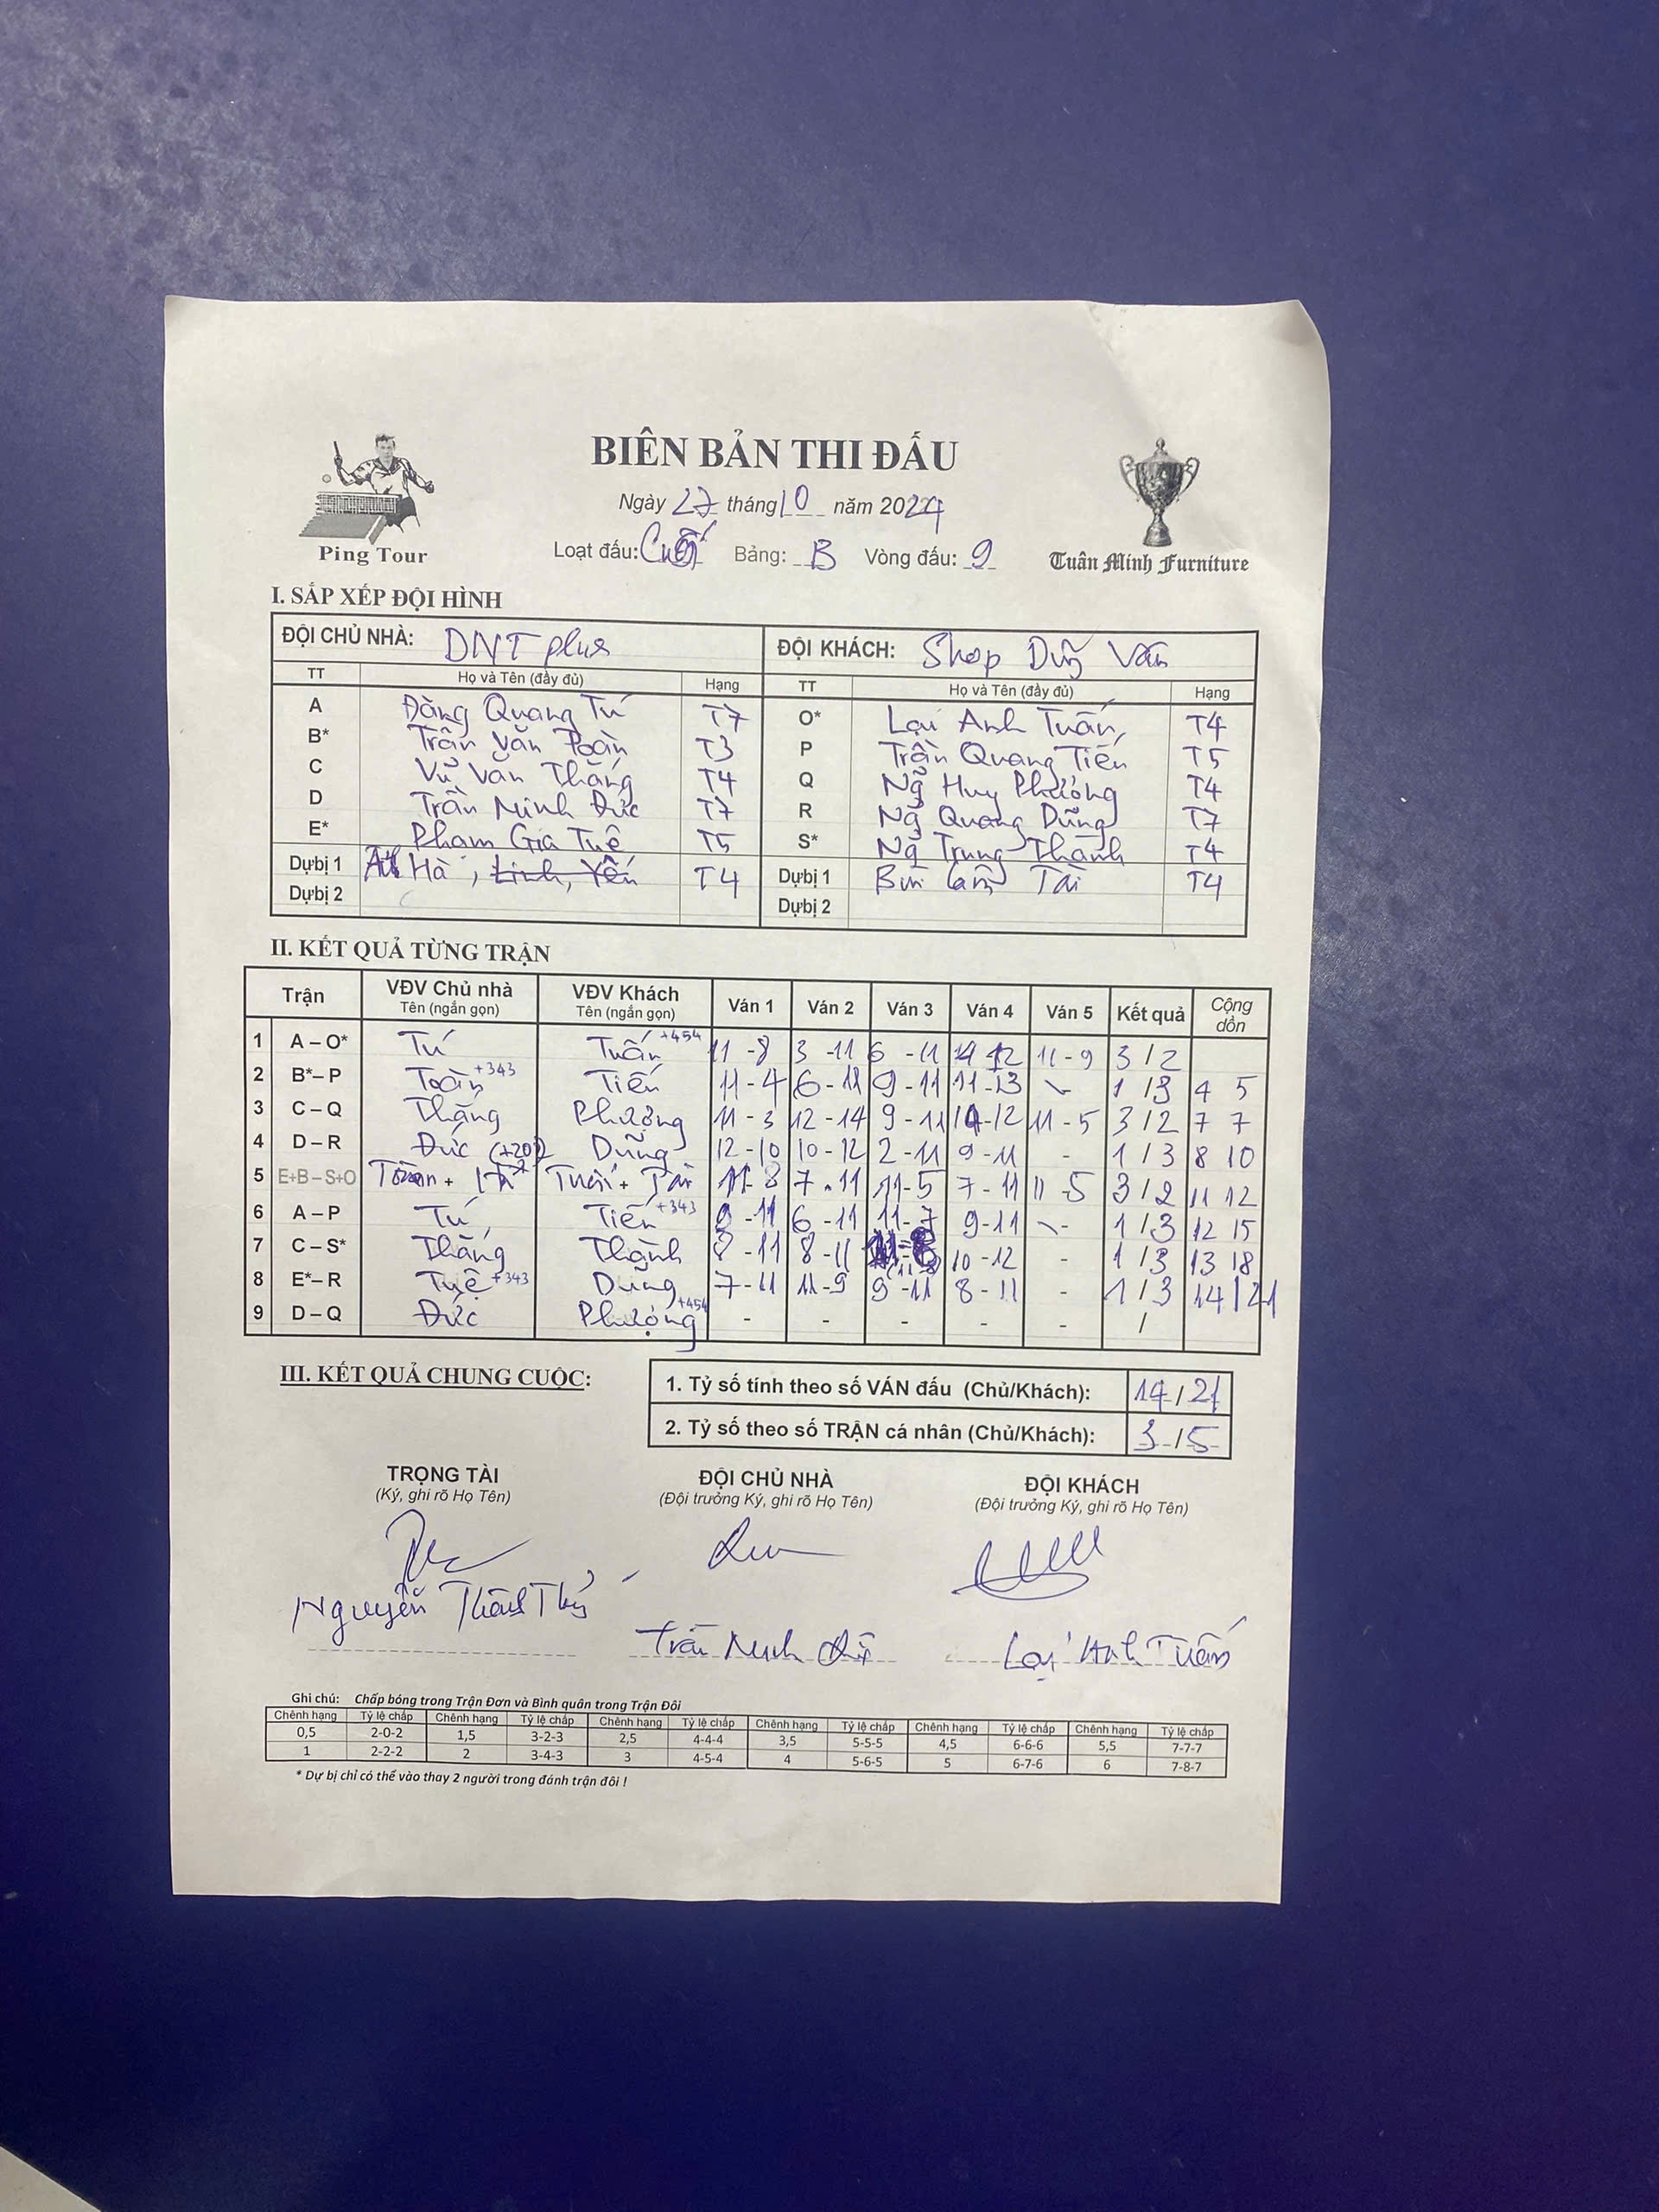 BIÊN BẢN THI ĐẤU
Ngày 27 tháng 10 năm 2024
Ping Tour
Loạt đấu: Cuối Bảng: B Vòng đấu: 9
Tuân Minh Furniture
I. SẮP XẾP ĐỘI HÌNH
ĐỘI CHỦ NHÀ: DNT plus ĐỘI KHÁCH: Shop Dũng Vân
TT Họ và Tên (đầy đủ) Hạng TT Họ và Tên (đầy đủ) Hạng
A Đặng Quang Tú T7 O* Lại Anh Tuấn T4
B* Trần Văn Toàn T3 P Trần Quang Tiến T5
C Vũ Văn Thắng T4 Q Ng Huy Phương T4
D Trần Minh Đức T7 R Ng Quang Dũng T7
E* Phạm Gia Tuệ T5 S* Ng Trung Thành T4
Dự bị 1 Hà, Linh, Yến T4 Dự bị 1 Bùi Tài T4
Dự bị 2 Dự bị 2
II. KẾT QUẢ TỪNG TRẬN
Trận VĐV Chủ nhà Tên (ngắn gọn) VĐV Khách Tên (ngắn gọn) Ván 1 Ván 2 Ván 3 Ván 4 Ván 5 Kết quả Cộng dồn
1 A – O* Tú Tuấn +454 11 - 8 3 - 11 6 - 11 12 11 - 9 3 / 2
2 B* – P Toàn +343 Tiến 11 - 4 6 - 11 9 - 11 11 - 13 - 1 / 3 4 5
3 C – Q Thắng Phương 11 - 3 12 - 14 9 - 11 14 - 12 11 - 5 3 / 2 7 7
4 D – R Đức Dũng 12 - 10 10 - 12 2 - 11 9 - 11 - 1 / 3 8 10
5 E+B – S+O Toàn + Hà Tuấn + Tài 11 - 8 7 - 11 11 - 5 7 - 11 11 - 5 3 / 2 11 12
6 A – P Tú Tiến +343 9 - 11 6 - 11 11 - 7 9 - 11 - 1 / 3 12 15
7 C – S* Thắng Thành 8 - 11 8 - 11 (11-8) 10 - 12 - 1 / 3 13 18
8 E* – R Tuệ +343 Dũng 7 - 11 11 - 9 9 - 11 8 - 11 - 1 / 3 14 / 21
9 D – Q Đức Phương +454 - - - - - /
III. KẾT QUẢ CHUNG CUỘC:
1. Tỷ số tính theo số VÁN đấu (Chủ/Khách): 14 / 21
2. Tỷ số theo số TRẬN cá nhân (Chủ/Khách): 3 / 5
TRỌNG TÀI ĐỘI CHỦ NHÀ ĐỘI KHÁCH
(Ký, ghi rõ Họ Tên) (Đội trưởng Ký, ghi rõ Họ Tên) (Đội trưởng Ký, ghi rõ Họ Tên)
Nguyễn Thành Trần Minh Đức Lại Anh Tuấn
Ghi chú: Chấp bóng trong Trận Đơn và Bình quân trong Trận Đôi
Chênh hạng Tỷ lệ chấp Chênh hạng Tỷ lệ chấp Chênh hạng Tỷ lệ chấp Chênh hạng Tỷ lệ chấp Chênh hạng Tỷ lệ chấp Chênh hạng Tỷ lệ chấp
0,5 2-0-2 1,5 3-2-3 2,5 4-4-4 3,5 5-5-5 4,5 6-6-6 5,5 7-7-7
1 2-2-2 2 3-4-3 3 4-5-4 4 5-6-5 5 6-7-6 6 7-8-7
* Dự bị chỉ có thể vào thay 2 người trong đánh trận đôi !